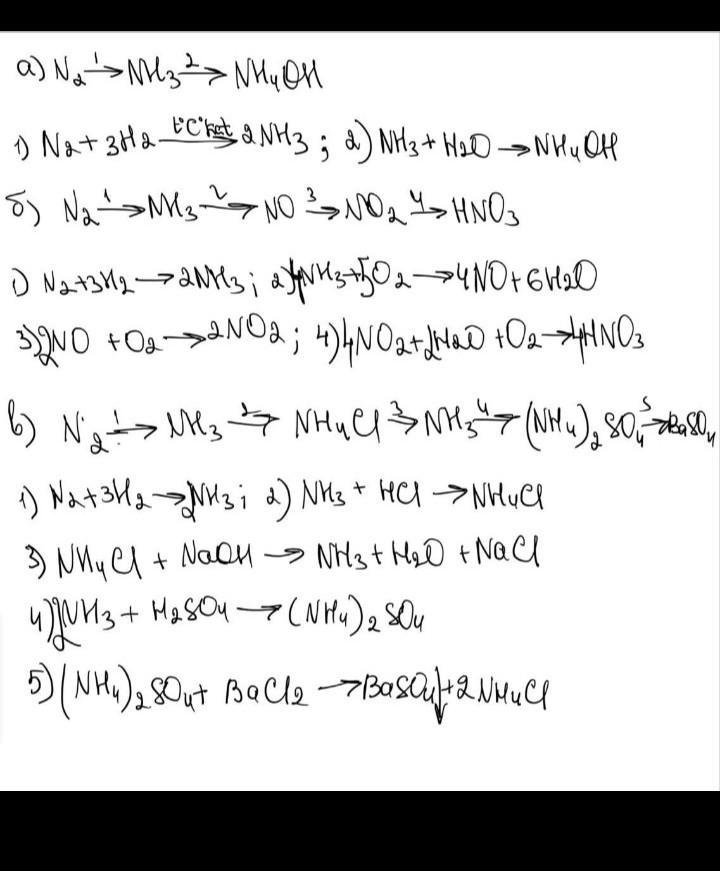 а) N₂ →¹ NH₃ →² NH₄OH
1) N₂ + 3H₂ → t°C, kat 2NH₃ ; 2) NH₃ + H₂O → NH₄OH
б) N₂ →¹ NH₃ →² NO →³ NO₂ →⁴ HNO₃
1) N₂+3H₂ → 2NH₃ ; 2) 4NH₃+5O₂ → 4NO + 6H₂O
3) 2NO + O₂ → 2NO₂ ; 4) 4NO₂ + 2H₂O + O₂ → 4HNO₃
в) N₂ →¹ NH₃ →² NH₄Cl →³ NH₃ →⁴ (NH₄)₂SO₄ →⁵ BaSO₄
1) N₂+3H₂ → 2NH₃ ; 2) NH₃ + HCl → NH₄Cl
3) NH₄Cl + NaOH → NH₃ + H₂O + NaCl
4) 2NH₃ + H₂SO₄ → (NH₄)₂SO₄
5) (NH₄)₂SO₄ + BaCl₂ → BaSO₄↓ + 2NH₄Cl